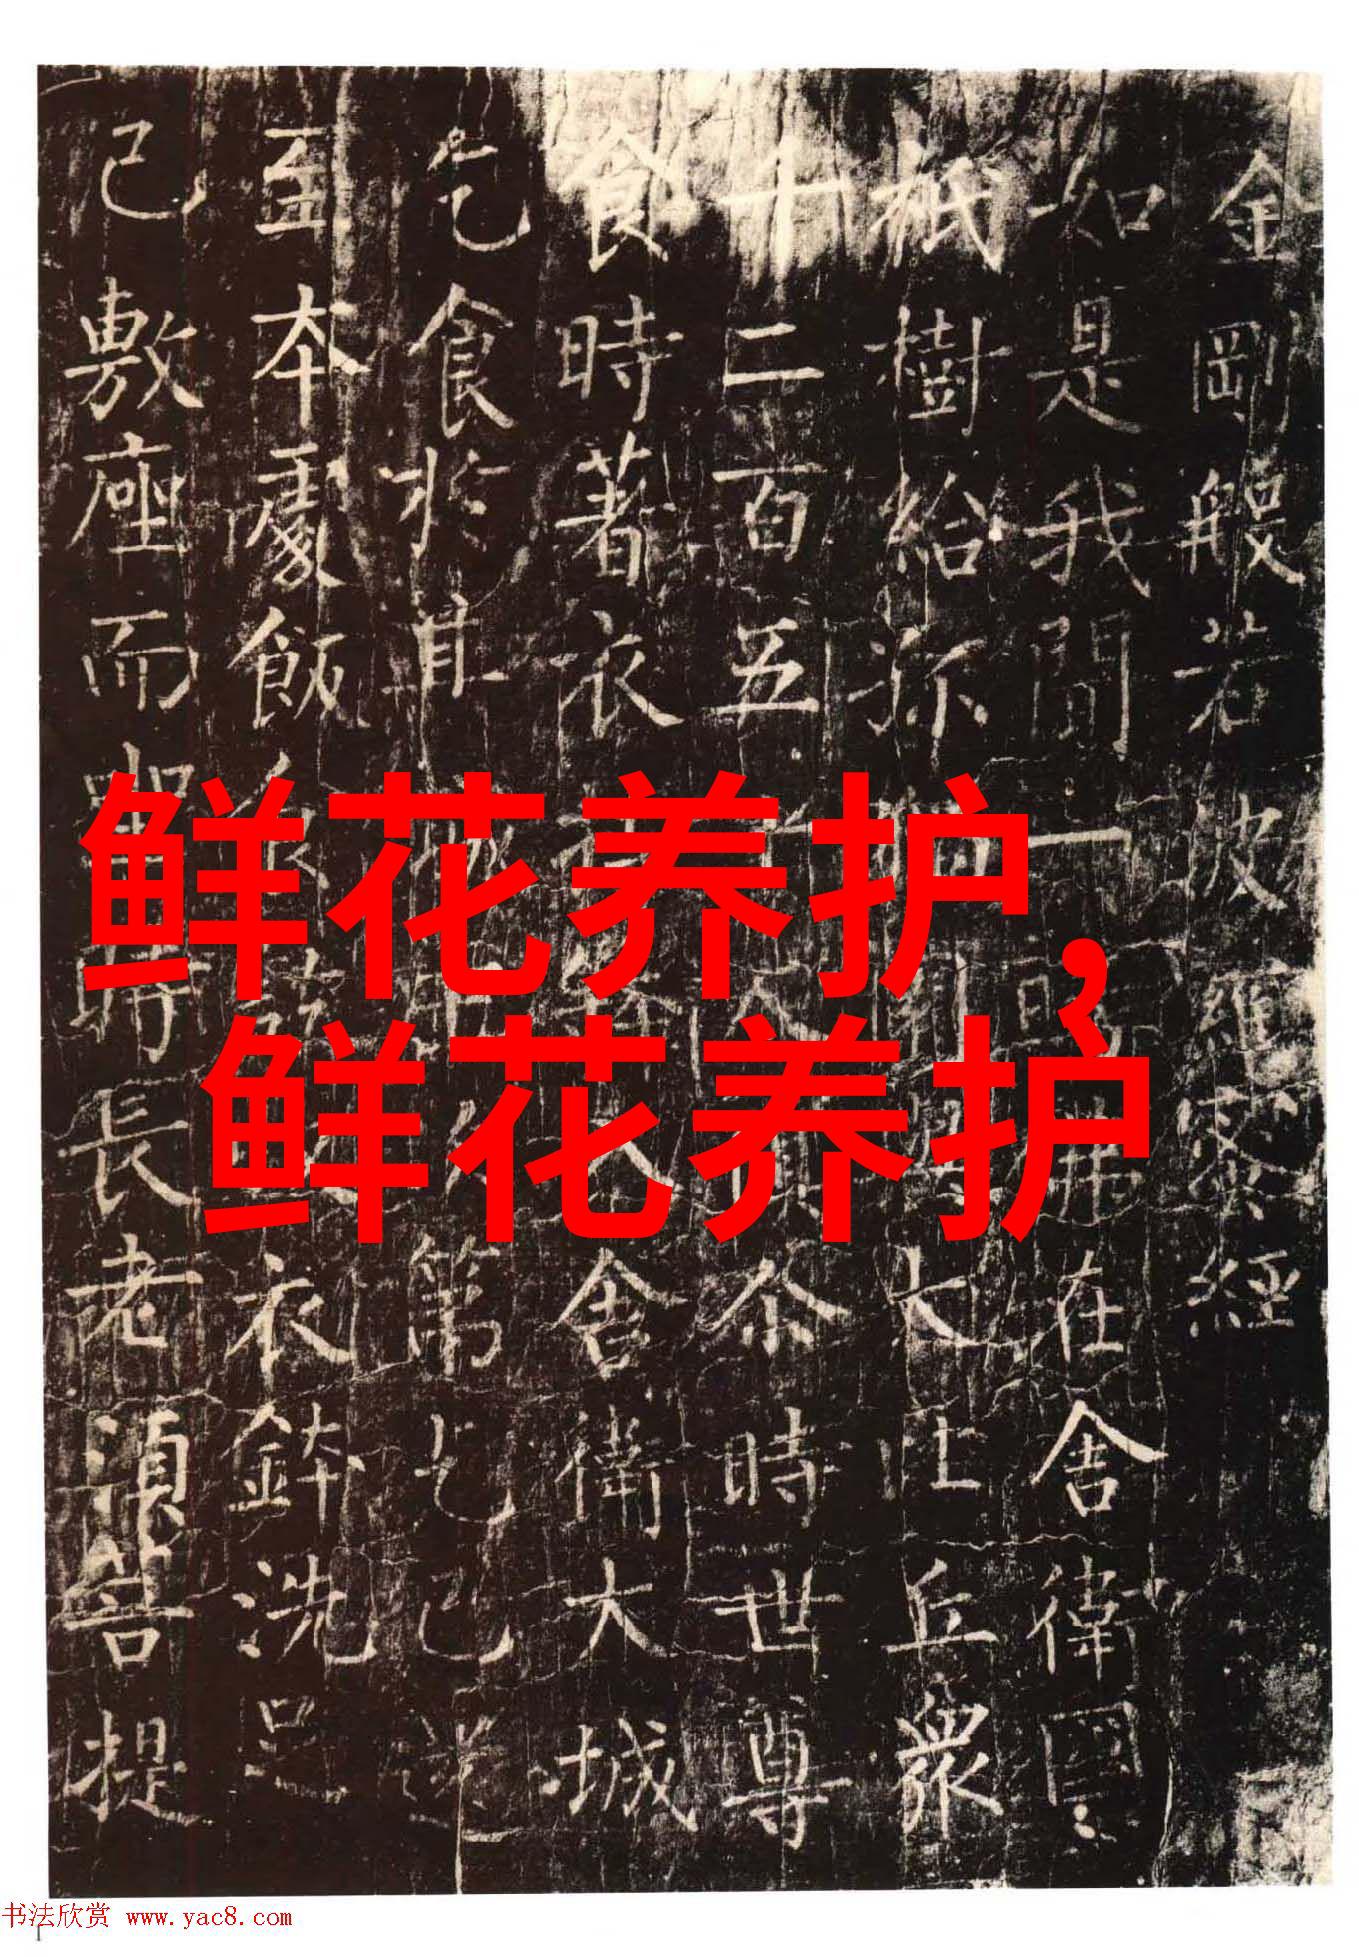 金剛般若波羅蜜經
如是我聞一時佛在舍衛國
祇樹給孤大比丘衆
千二百五人俱尒時世尊
食時著衣入舍衛大城
乞食於其第乞已還
至本處飯食衣鉢洗足
已敷座而坐時長老須菩提
鲜花养护，
鲜花养护
书法欣赏 www.yac8.com